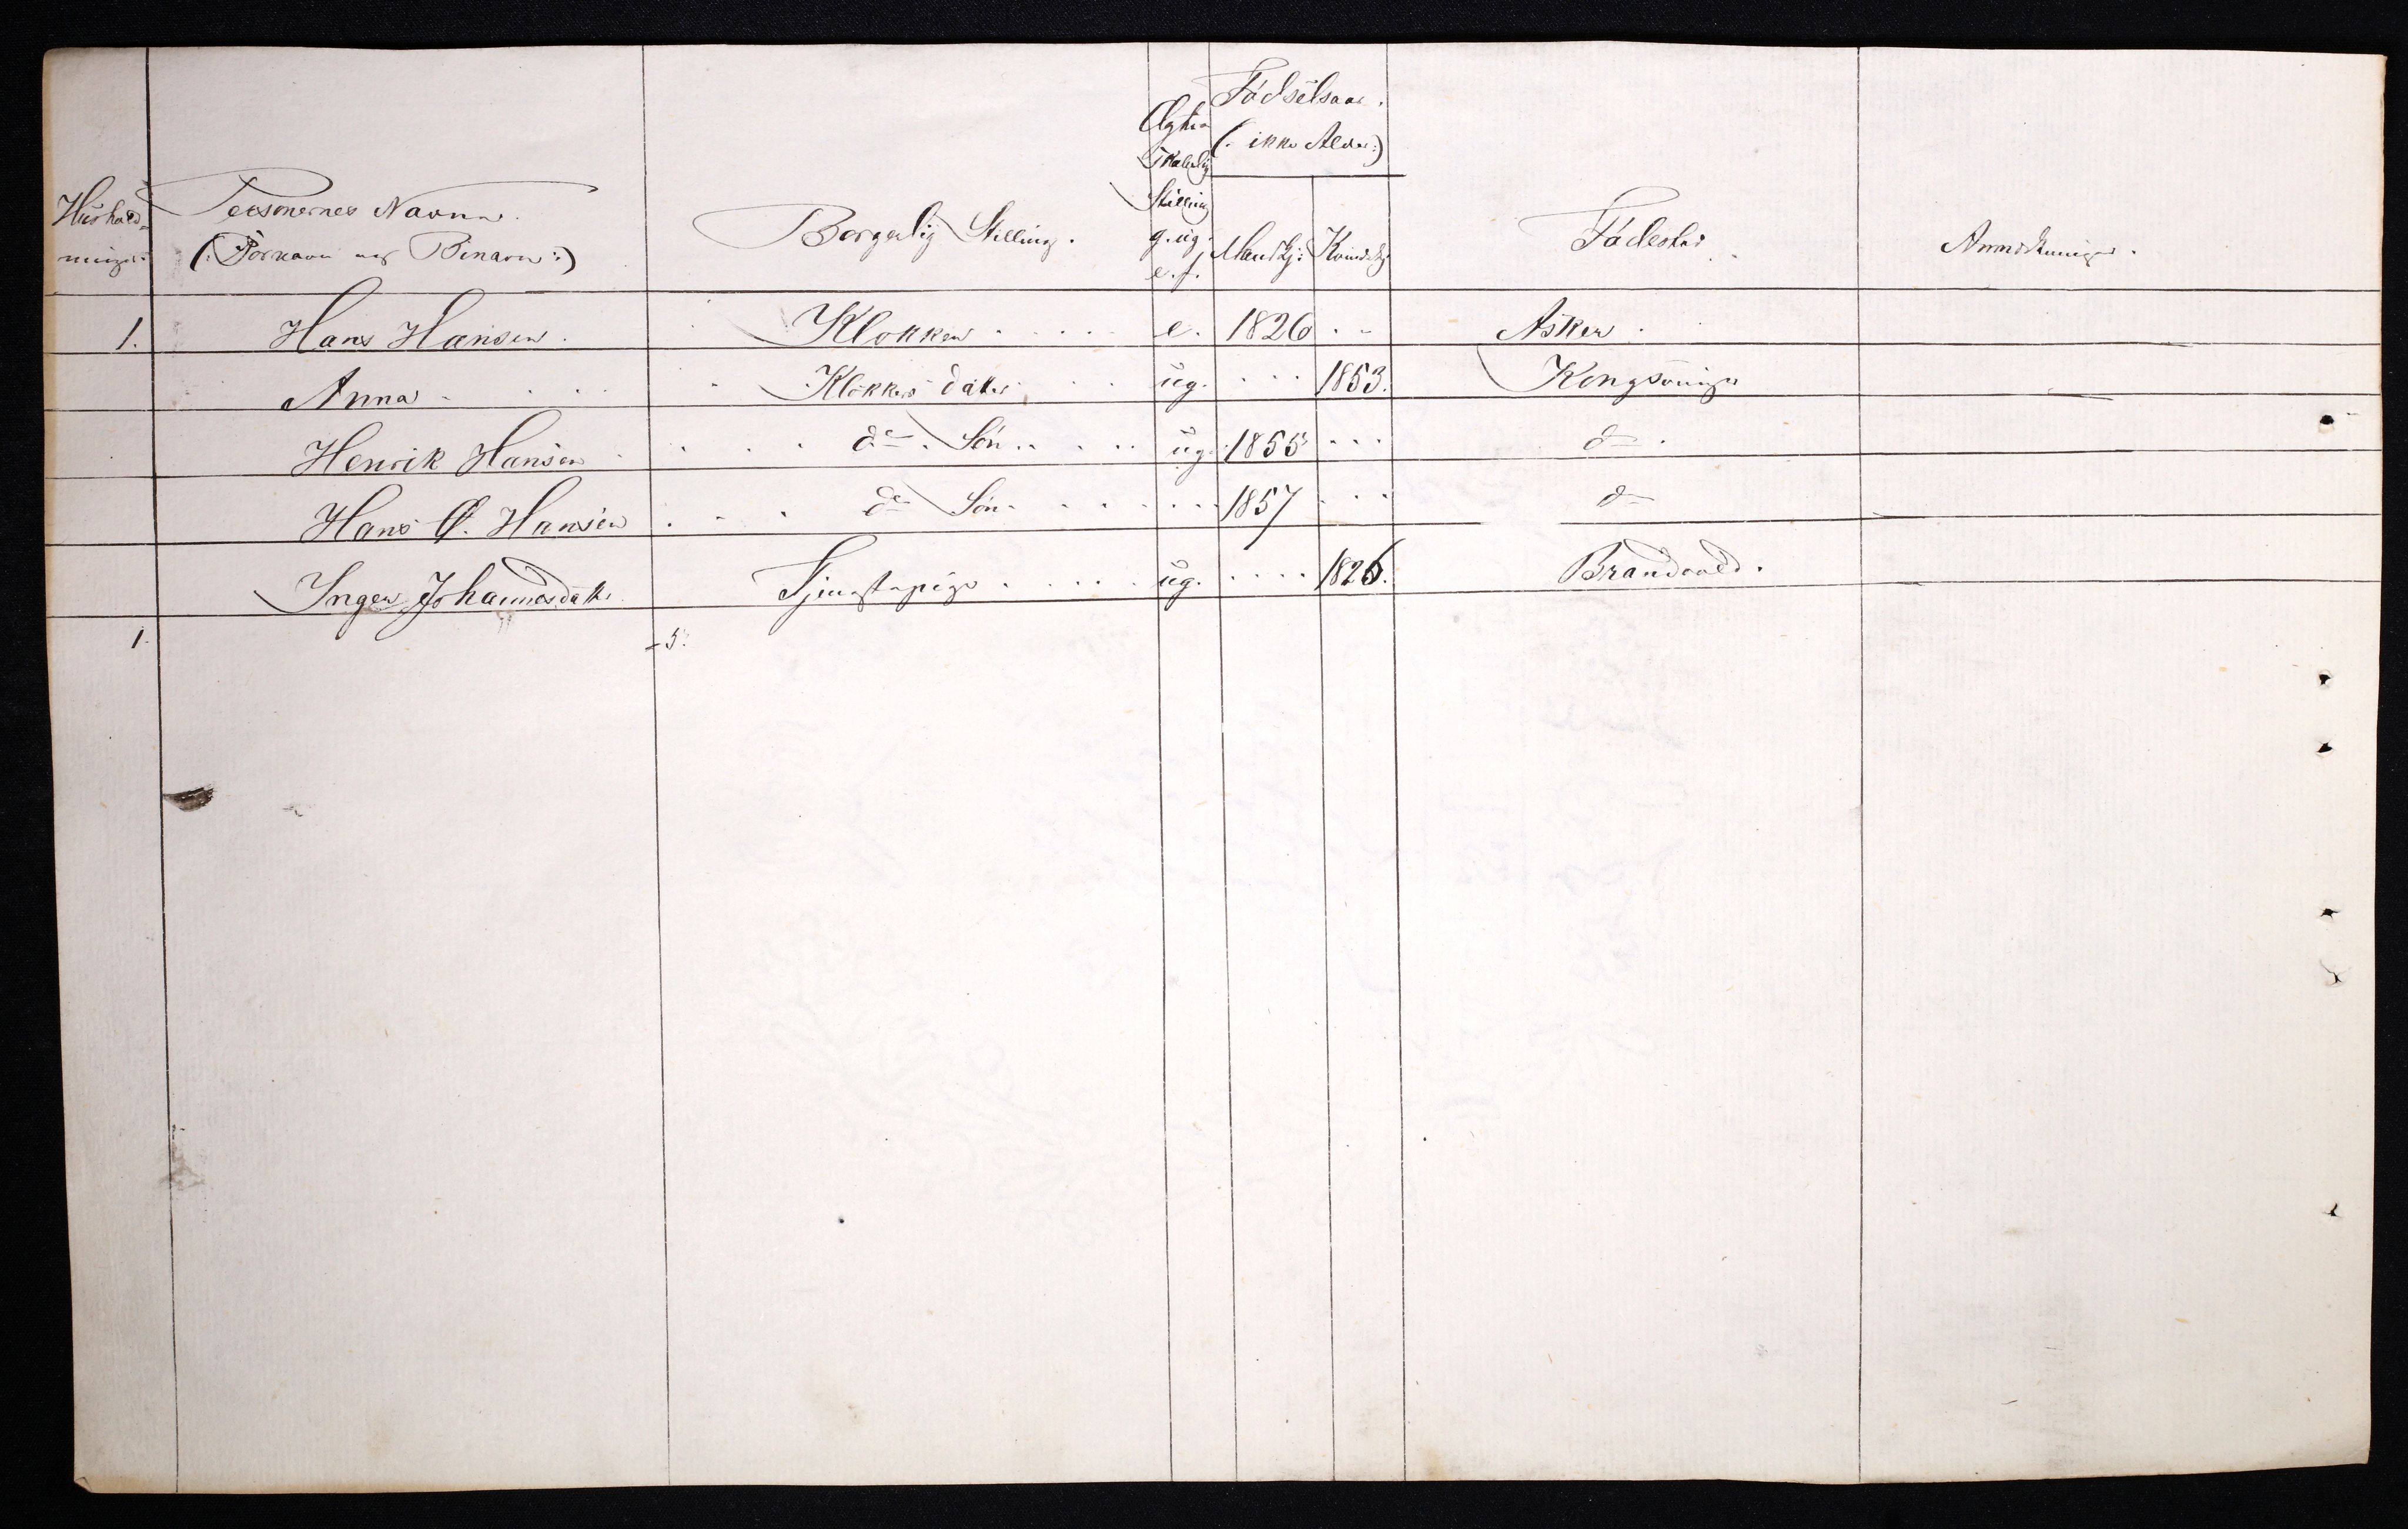 Husholdninger.
Personernes Navne.
(: Fornavn og Binavn :)
Borgerlig Stilling.
Ægteskabelig Stilling
g. ug.
e. f.
Fødselsaar.
(: ikke Alder :)
Mandkj:
Kvindekj.
Fødested
Anmærkninger.
1. Hans Hansen. Klokker e. 1826 Asker.
Anna Klokkers datter ug. 1853. Kongsvinger
Henrik Hansen do. Søn ug. 1855 do.
Hans O. Hansen do Søn 1857 do
Inger Johannesdatter Tjenestepige ug. 1826. Brandvold.
1. 5.